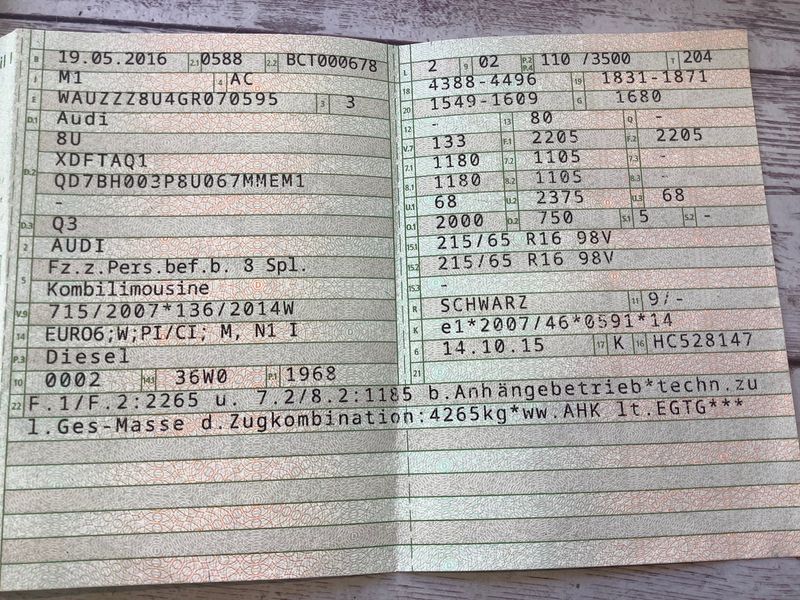 B 19.05.2016 2.1 0588 2.2 BCT000678
J M1 4 AC
E WAUZZZ8U4GR070595 3 3
D.1 Audi
8U
D.2 XDFTAQ1
QD7BH003P8U067MMEM1
-
D.3 Q3
2 AUDI
5 Fz.z.Pers.bef.b. 8 Spl.
Kombilimousine
V.9 715/2007*136/2014W
14 EURO6;W;PI/CI; M, N1 I
P.3 Diesel
10 0002 14.1 36W0 P.1 1968
22 F.1/F.2:2265 u. 7.2/8.2:1185 b.Anhängebetrieb*techn.zu
l.Ges-Masse d.Zugkombination:4265kg*ww.AHK lt.EGTG***
L 2 9 02 P.2 P.4 110 /3500 T 204
18 4388-4496 19 1831-1871
20 1549-1609 G 1680
12 - 13 80 Q -
V.7 133 F.1 2205 F.2 2205
7.1 1180 7.2 1105 7.3 -
8.1 1180 8.2 1105 8.3 -
U.1 68 U.2 2375 U.3 68
O.1 2000 O.2 750 S.1 5 S.2 -
15.1 215/65 R16 98V
15.2 215/65 R16 98V
15.3 -
R SCHWARZ 11 9/-
K e1*2007/46*0591*14
6 14.10.15 17 K 16 HC528147
21